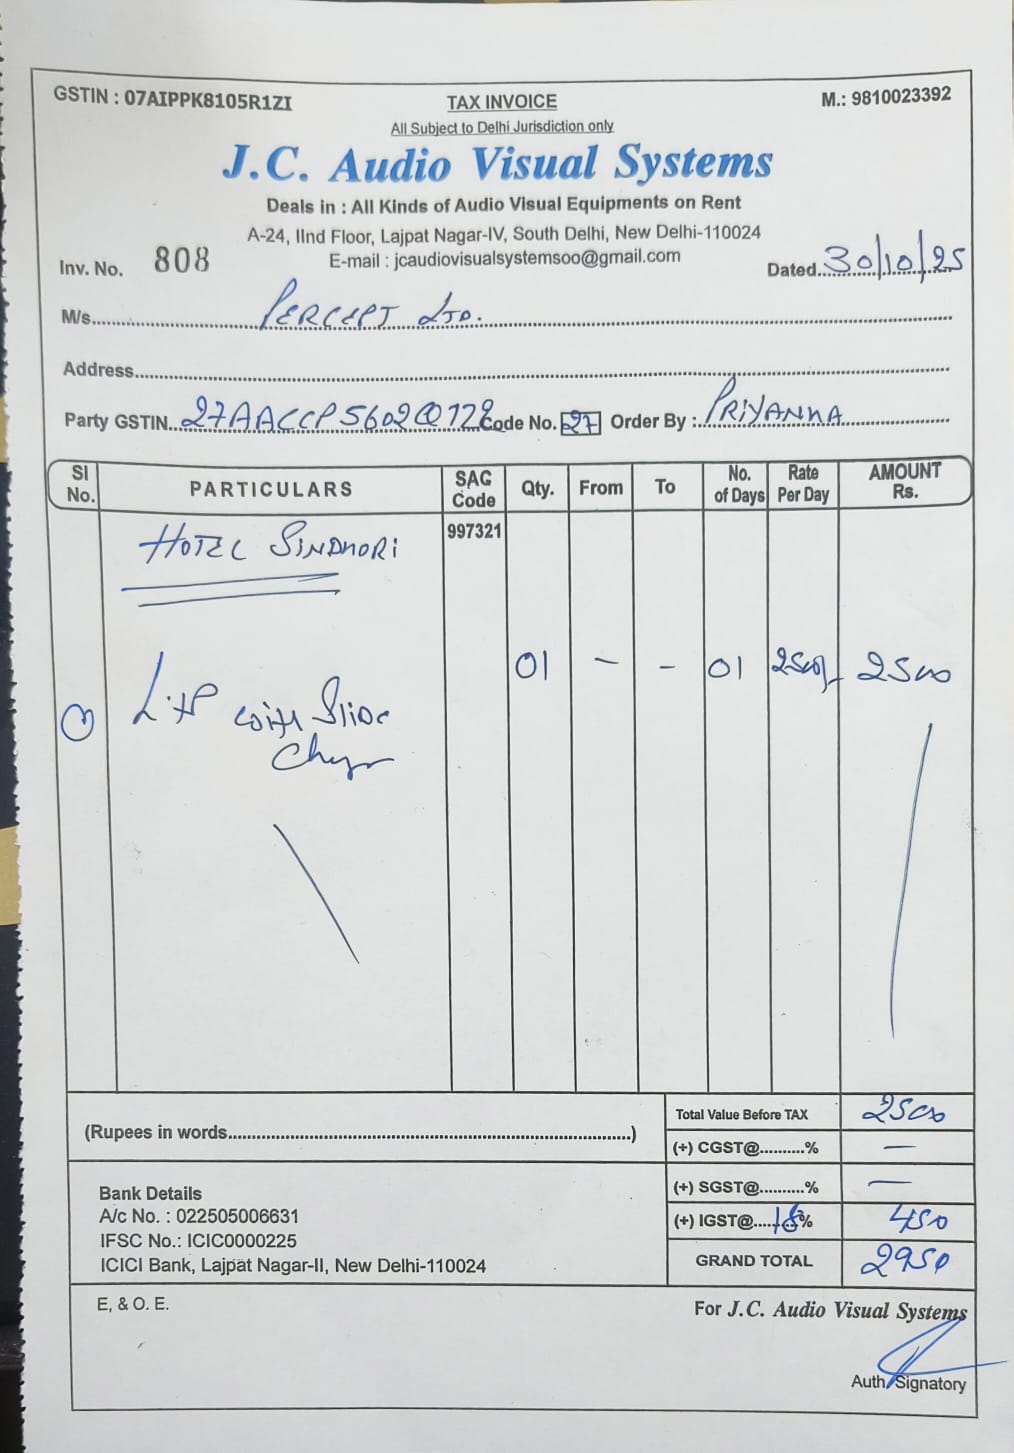 GSTIN : 07AIPPK8105R1ZI
TAX INVOICE
M.: 9810023392
All Subject to Delhi Jurisdiction only
J.C. Audio Visual Systems
Deals in : All Kinds of Audio Visual Equipments on Rent
A-24, IInd Floor, Lajpat Nagar-IV, South Delhi, New Delhi-110024
E-mail : jcaudiovisualsystemsoo@gmail.com
Inv. No. 808
Dated 30/10/25
M/s. PERCEPT LTD.
Address
Party GSTIN. 27AACCP5602Q1Z8 Code No. 27 Order By : PRIYANKA
SI No. PARTICULARS SAC Code Qty. From To No. of Days Rate Per Day AMOUNT Rs.
HOTEL SINDHORI 997321
01 - - 01 2500/- 2500
with Slide
Total Value Before TAX 2500
(Rupees in words)
(+) CGST@..........% —
(+) SGST@..........% —
(+) IGST@.....18% 450
GRAND TOTAL 2950
Bank Details
A/c No. : 022505006631
IFSC No.: ICIC0000225
ICICI Bank, Lajpat Nagar-II, New Delhi-110024
E, & O. E.
For J.C. Audio Visual Systems
Auth. Signatory